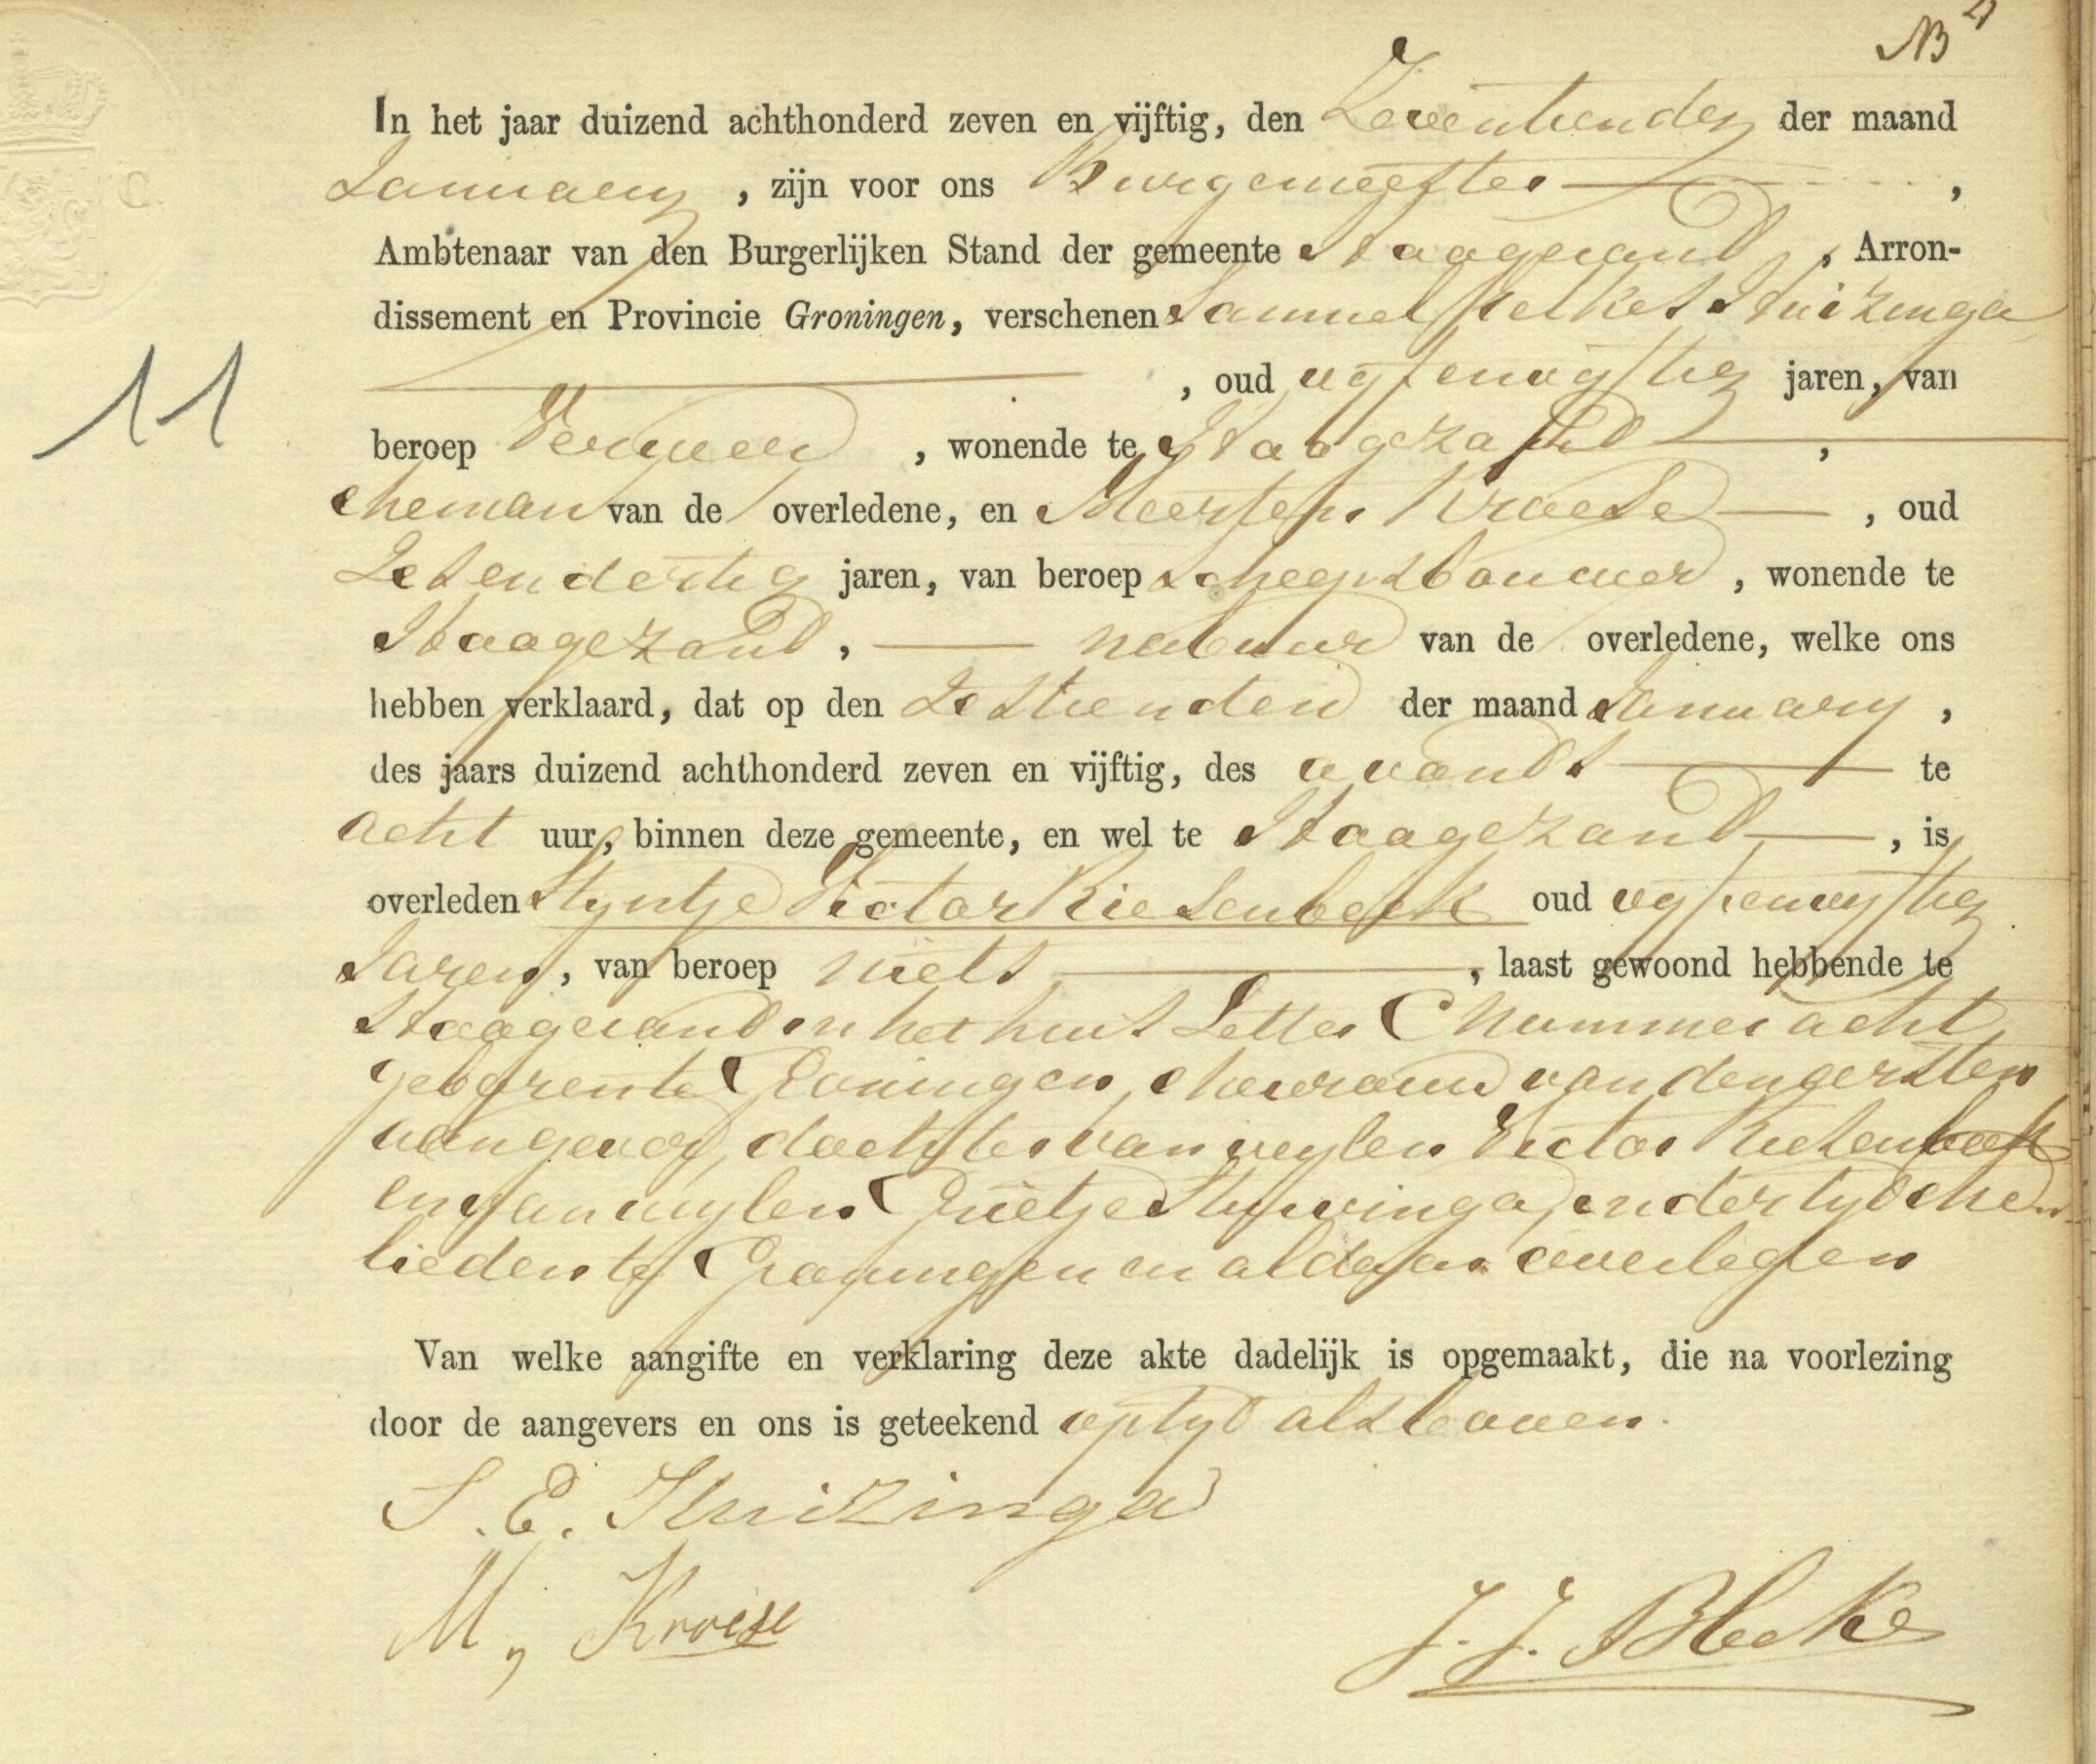 11
In het jaar duizend achthonderd zeven en vijftig, den Zeventienden der maand
January, zijn voor ons Burgemeester,
Ambtenaar van den Burgerlijken Stand der gemeente Hoogezand, Arron-
dissement en Provincie Groningen, verschenen Samuel Huizinga
, oud vyfenvyftig jaren, van
beroep Verwer, wonende te Hoogezand,
eheman van de overledene, en Meerten Kroese, oud
Zesendertig jaren, van beroep scheepsbouwer, wonende te
Hoogezand, nabuur van de overledene, welke ons
hebben verklaard, dat op den Zestienden der maand January,
des jaars duizend achthonderd zeven en vijftig, des avonds te
acht uur, binnen deze gemeente, en wel te Hoogezand, is
overleden Styntje Victor Riesenbeek oud vyfenvyftig
Jaren, van beroep niets, laast gewoond hebbende te
Hoogezand in het huis Letter C Nummer acht
geboren te Groningen, ehevrouw van den eersten
aangever, dochter van wylen Victor Riesenbeek
en van wylen Grietje in der tyd ehe
lieden te Groningen en aldaar overleden
Van welke aangifte en verklaring deze akte dadelijk is opgemaakt, die na voorlezing
door de aangevers en ons is geteekend op tyd als boven.
S. E. Huizinga
M, Kroese